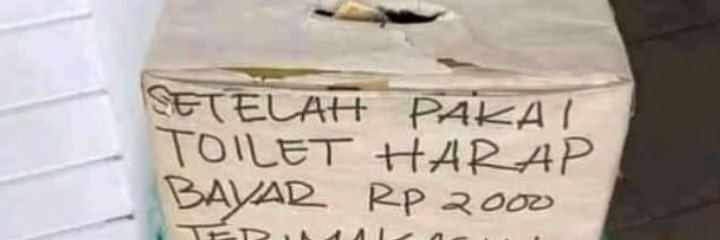 SETELAH PAKAI
TOILET HARAP
BAYAR RP 2000